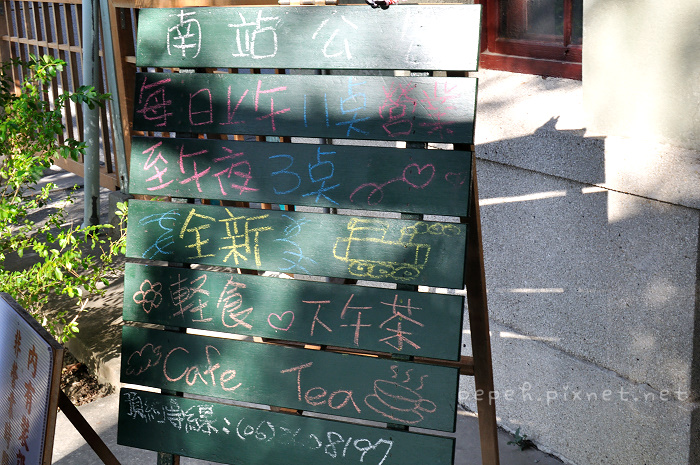 南站公
每日上午11點營業
至午夜3點
全新
輕食 下午茶
Cafe Tea
預約專線:(06) 8197
pepeh.pixnet.net